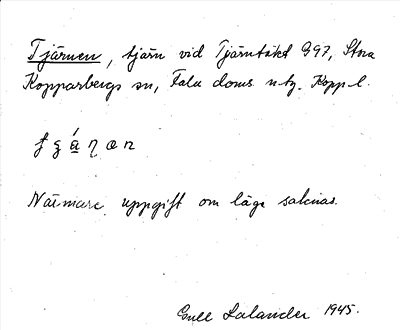 Tjärnen, tjärn vid Tjärntäkt 997, Stora
Kopparbergs sn, Falu doms. n tg. Kopp l.
Närmare uppgift om läge saknas.
Gull Lalander 1945.